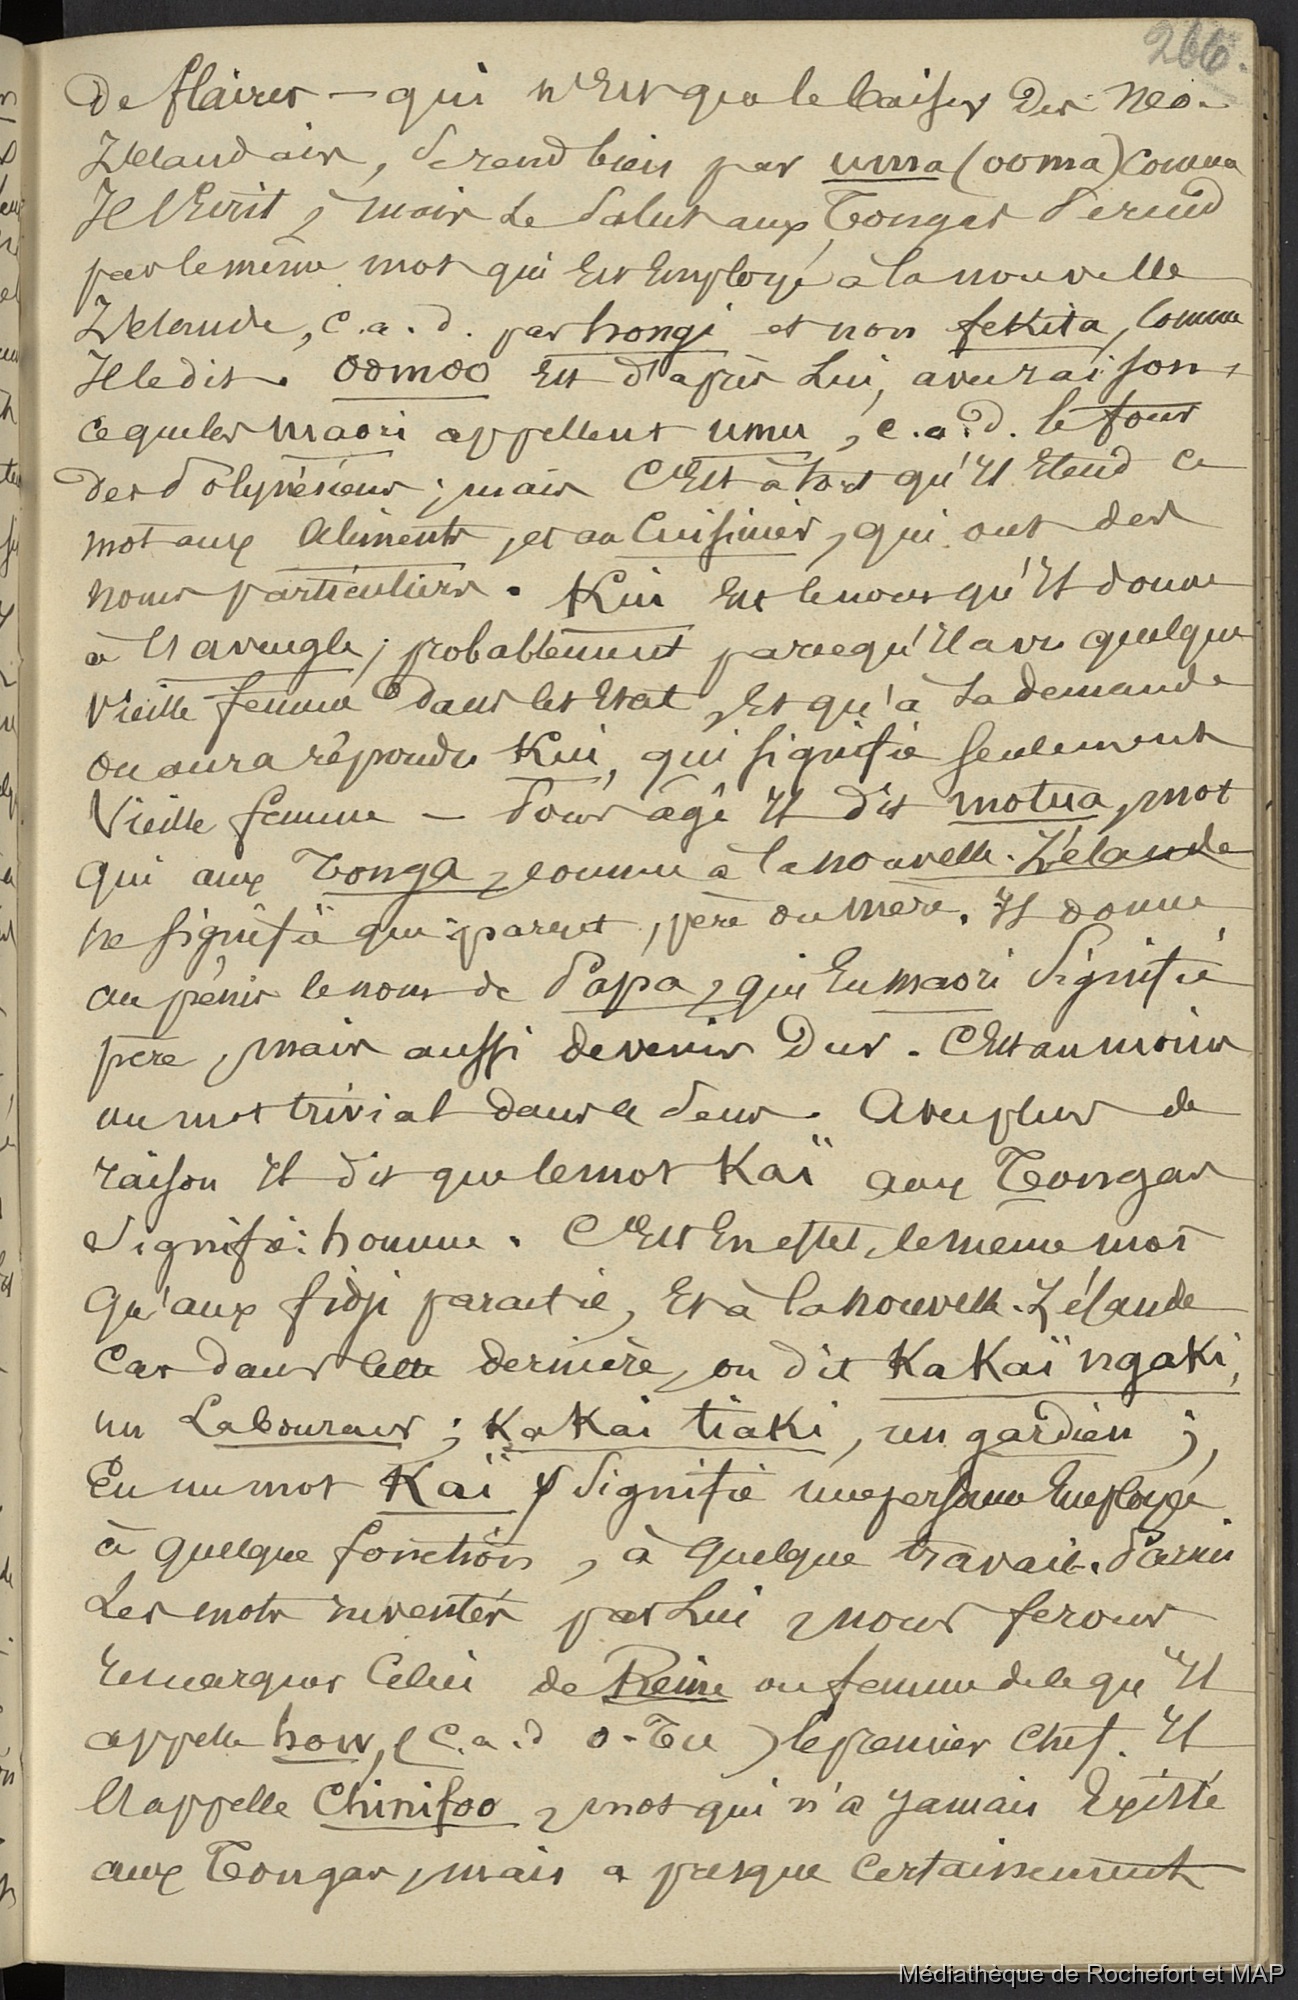 266.
de flairer — qui n'est que le baiser des Néo-
Zélandais, se rend bien par uma (ooma) comme
Il l'écrit, mais le salut aux Tongas se rend
par le même mot qui est employé à la nouvelle
Zélande, c.a.d. par hongi et non fekita, comme
Il le dit. Oomoo est d'après Lui, avec raison,
ce que les maori appellent umu, c.a.d. le four
des Polynésiens ; mais C'est à tort qu'Il étend ce
mot aux aliments, et au Cuisinier, qui ont des
noms particuliers. Kui est le nom qu'Il donne
à l'aveugle ; probablement parce qu'Il a vu quelque
vieille femme dans cet état, Et qu'à sa demande
on aura répondu Kui, qui signifie seulement
Vieille femme — Pour âgé Il dit motua, mot
qui aux Tonga, comme à la nouvelle-Zélande
ne signifie que parent, père ou mère. Il donne
au pénis le nom de Papa, qui En maori signifie
père, mais aussi devenir Dur. C'est au moins
un mot trivial dans ce sens. Avec plus de
raison Il dit que le mot Kaï aux Tongas
signifie : homme. C'est En effet, le même mot
qu'aux fidji parait-il, Et à la nouvelle-Zélande
Car dans cette dernière, on dit Ka Kaï ngaki,
un Laboureur ; Ka Kai tiaki, un gardien ;
En un mot Kaï signifie une personne Employée
à quelque fonction, à quelque travail. Parmi
Les mots inventés par Lui, nous ferons
remarquer Celui de Reine ou femme de le qu'Il
appelle how, (C.a.d o-Tu) le premier Chef. Il
l'appelle Chinifoo, mot qui n'a jamais Existé
aux Tongas, mais a presque Certainement
Médiathèque de Rochefort et MAP